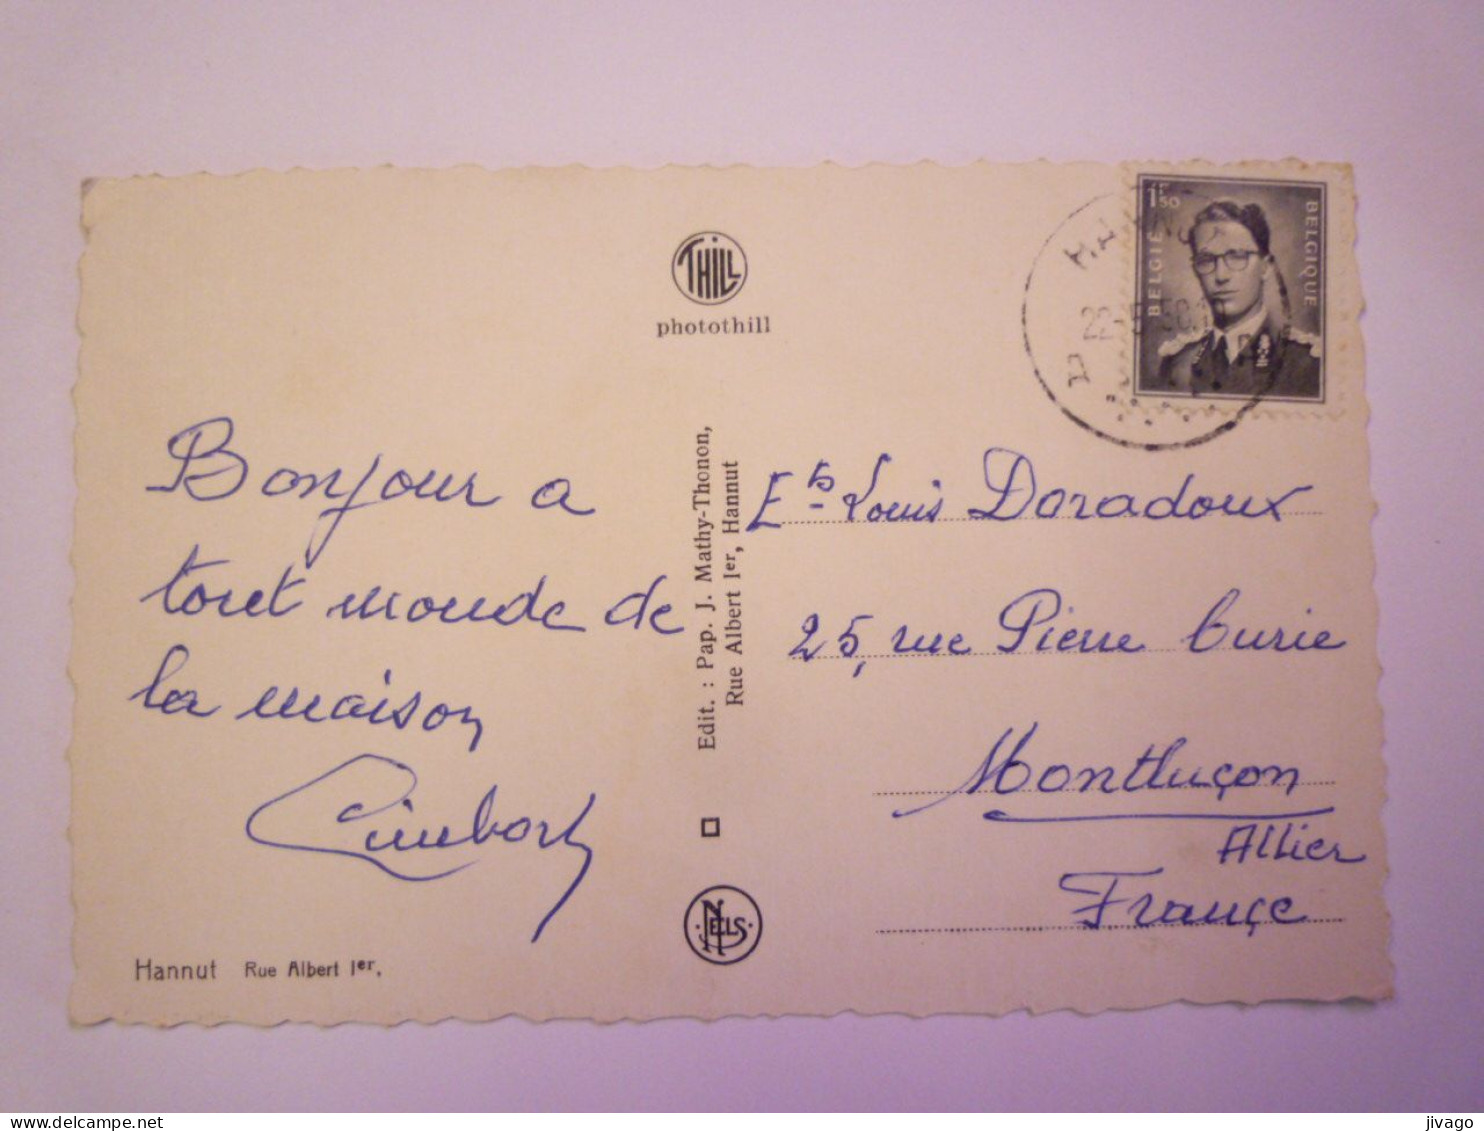 THILL
photothill
1F50
BELGIE
BELGIQUE
HANNUT
Bonjour a
tout monde de
la maison
Edit. : Pap. J. Mathy-Thonon,
Rue Albert Ier, Hannut
Ets Louis Doradoux
25, rue Pierre Curie
Montluçon
Allier
Françe
NELS
Hannut Rue Albert Ier.
jivago